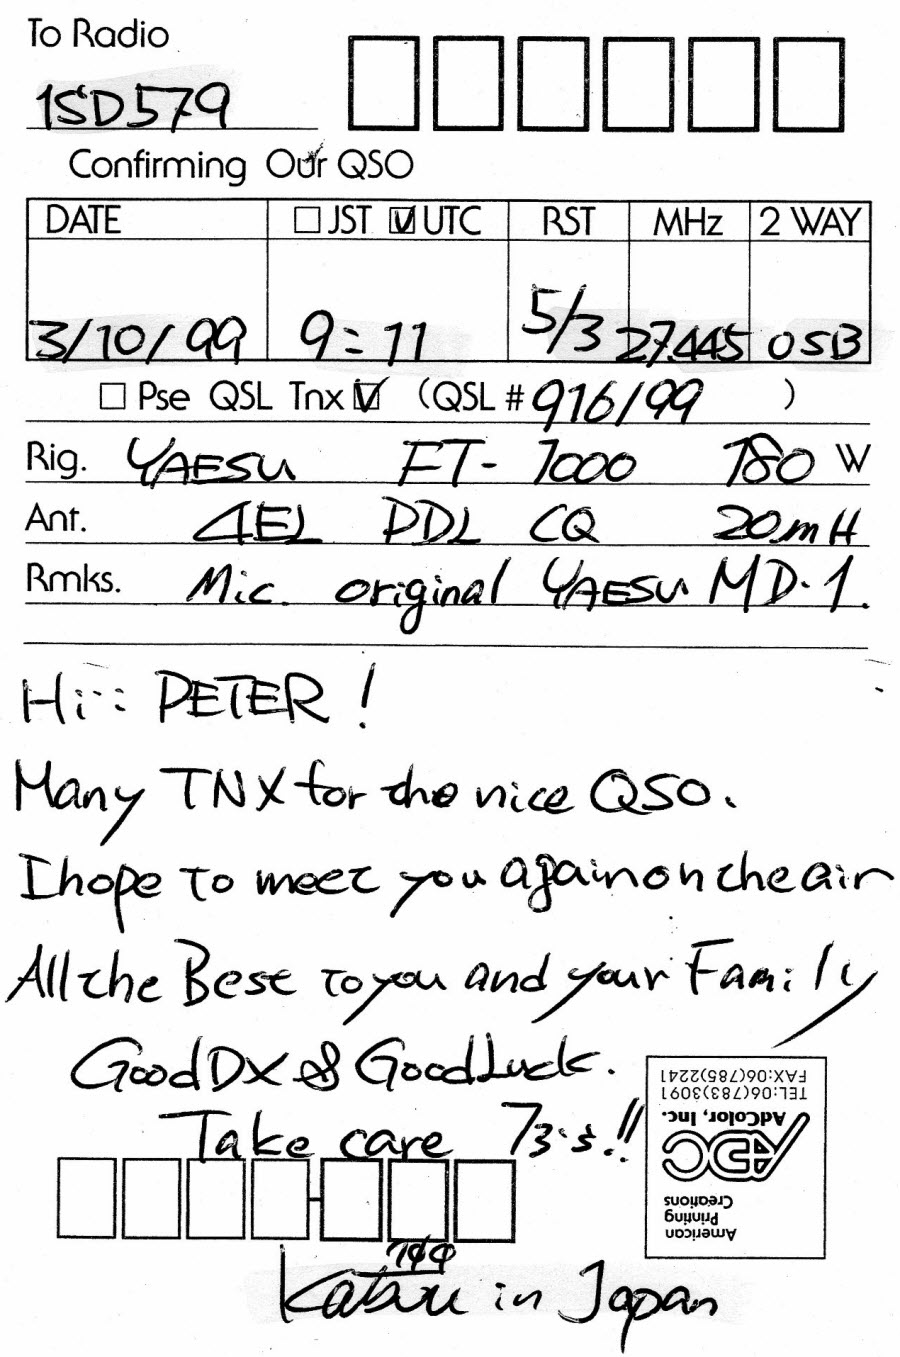 To Radio
1SD579
Confirming Our QSO
DATE JST UTC RST MHz 2 WAY
3/10/99 9:11 5/3 27.445 OSB
Pse QSL Tnx (QSL # 916/99 )
Rig. YAESU FT-1000 180 W
Ant. 4EL PDL CQ 20mH
Rmks. Mic. original YAESU MD-1.
Hi PETER!
Many TNX for the nice QSO.
I hope to meet you again on the air
All the Best to you and your Family
Good DX & Good Luck.
Take care 73's!!
Katsu in Japan
American
Printing
Creations
ADC
AdColor, Inc.
TEL:06(783)3091
FAX:06(785)2241